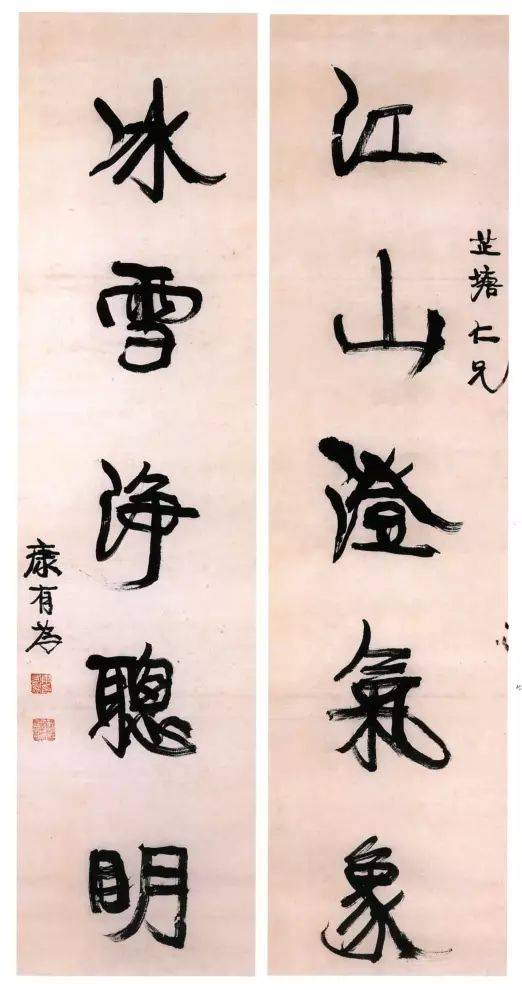 江山澄氣象
芷塘仁兄
冰雪淨聰明
康有為